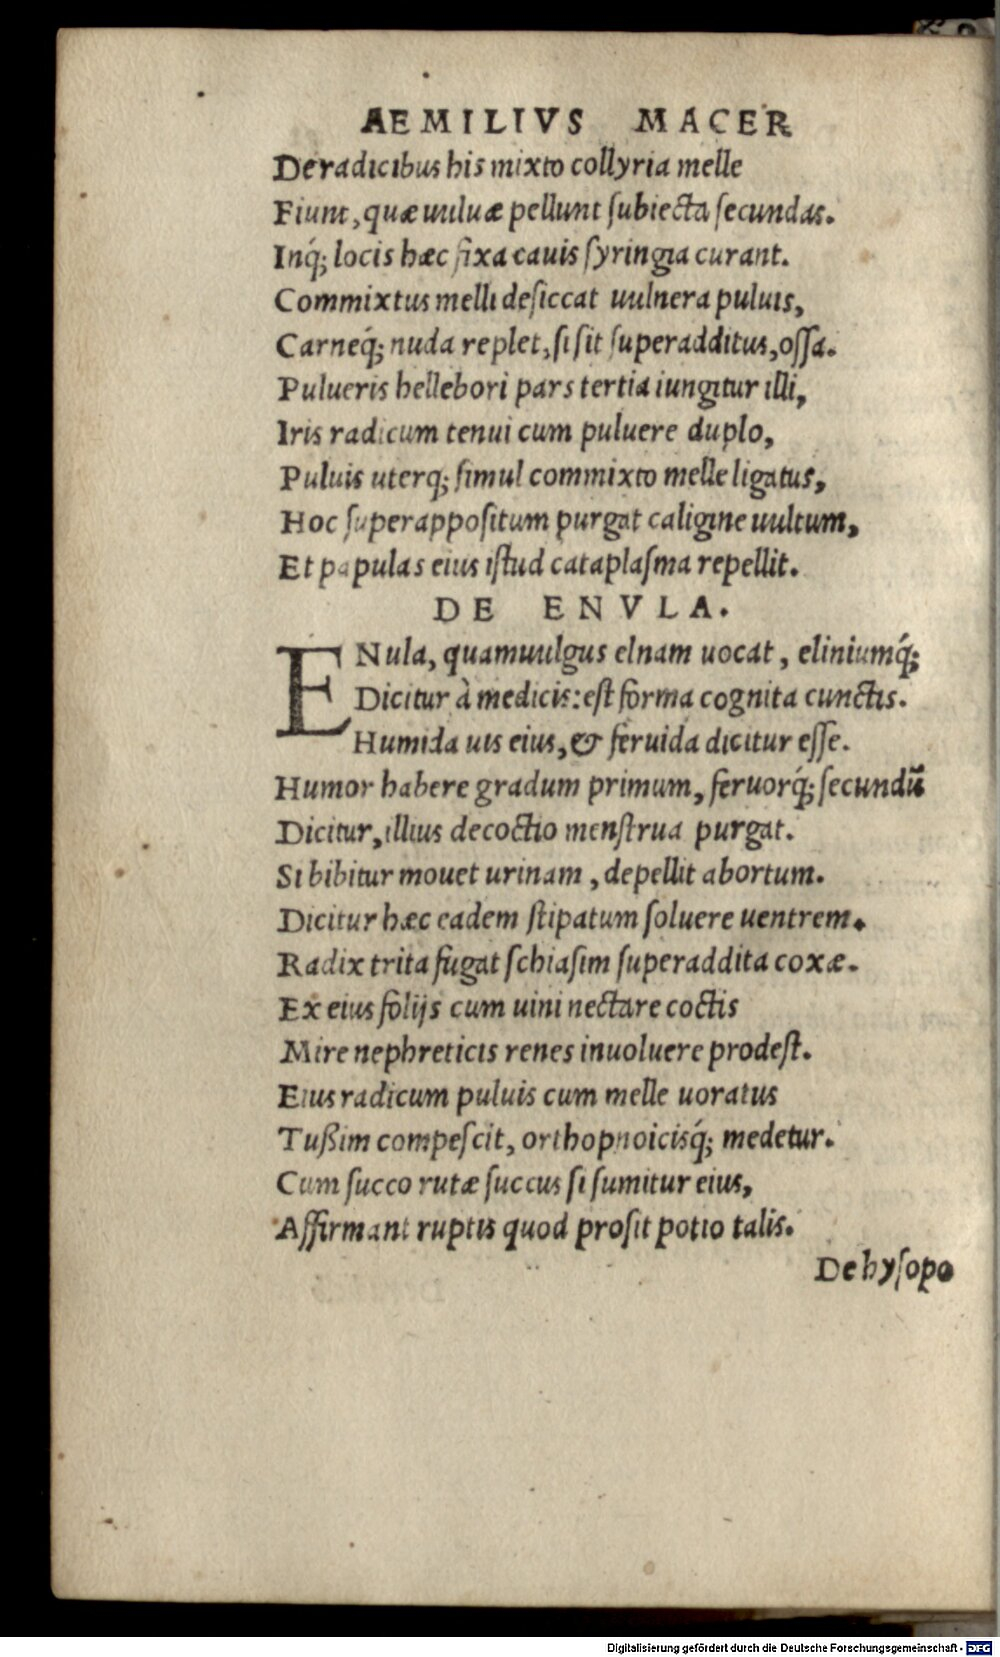 AEMILIVS MACER
De radicibus his mixto collyria melle
Fiunt, quæ uuluæ pellunt ſubiecta ſecundas.
Inq́; locis hæc fixa cauis ſyringia curant.
Commixtus melli deſiccat uulnera puluis,
Carneq́; nuda replet, ſi ſit ſuperadditus, oſſa.
Pulueris hellebori pars tertia iungitur illi,
Iris radicum tenui cum puluere duplo,
Puluis uterq; ſimul commixto melle ligatus,
Hoc ſuperappoſitum purgat caligine uultum,
Et papulas eius iſtud cataplaſma repellit.
DE ENVLA.
ENula, quam uulgus elnam uocat, eliniumq́;
Dicitur à medicis: eſt forma cognita cunctis.
Humida uis eius, & feruida dicitur eſſe.
Humor habere gradum primum, feruorq́; ſecundū
Dicitur, illius decoctio menſtrua purgat.
Si bibitur mouet urinam, depellit abortum.
Dicitur hæc eadem ſtipatum ſoluere uentrem.
Radix trita fugat ſchiaſim ſuperaddita coxæ.
Ex eius folijs cum uini nectare coctis
Mire nephreticis renes inuoluere prodeſt.
Eius radicum puluis cum melle uoratus
Tußim compeſcit, orthopnoicisq́; medetur.
Cum ſucco rutæ ſuccus ſi ſumitur eius,
Affirmant ruptis quod proſit potio talis.
De hyſopo
Digitalisierung gefördert durch die Deutsche Forschungsgemeinschaft - DFG